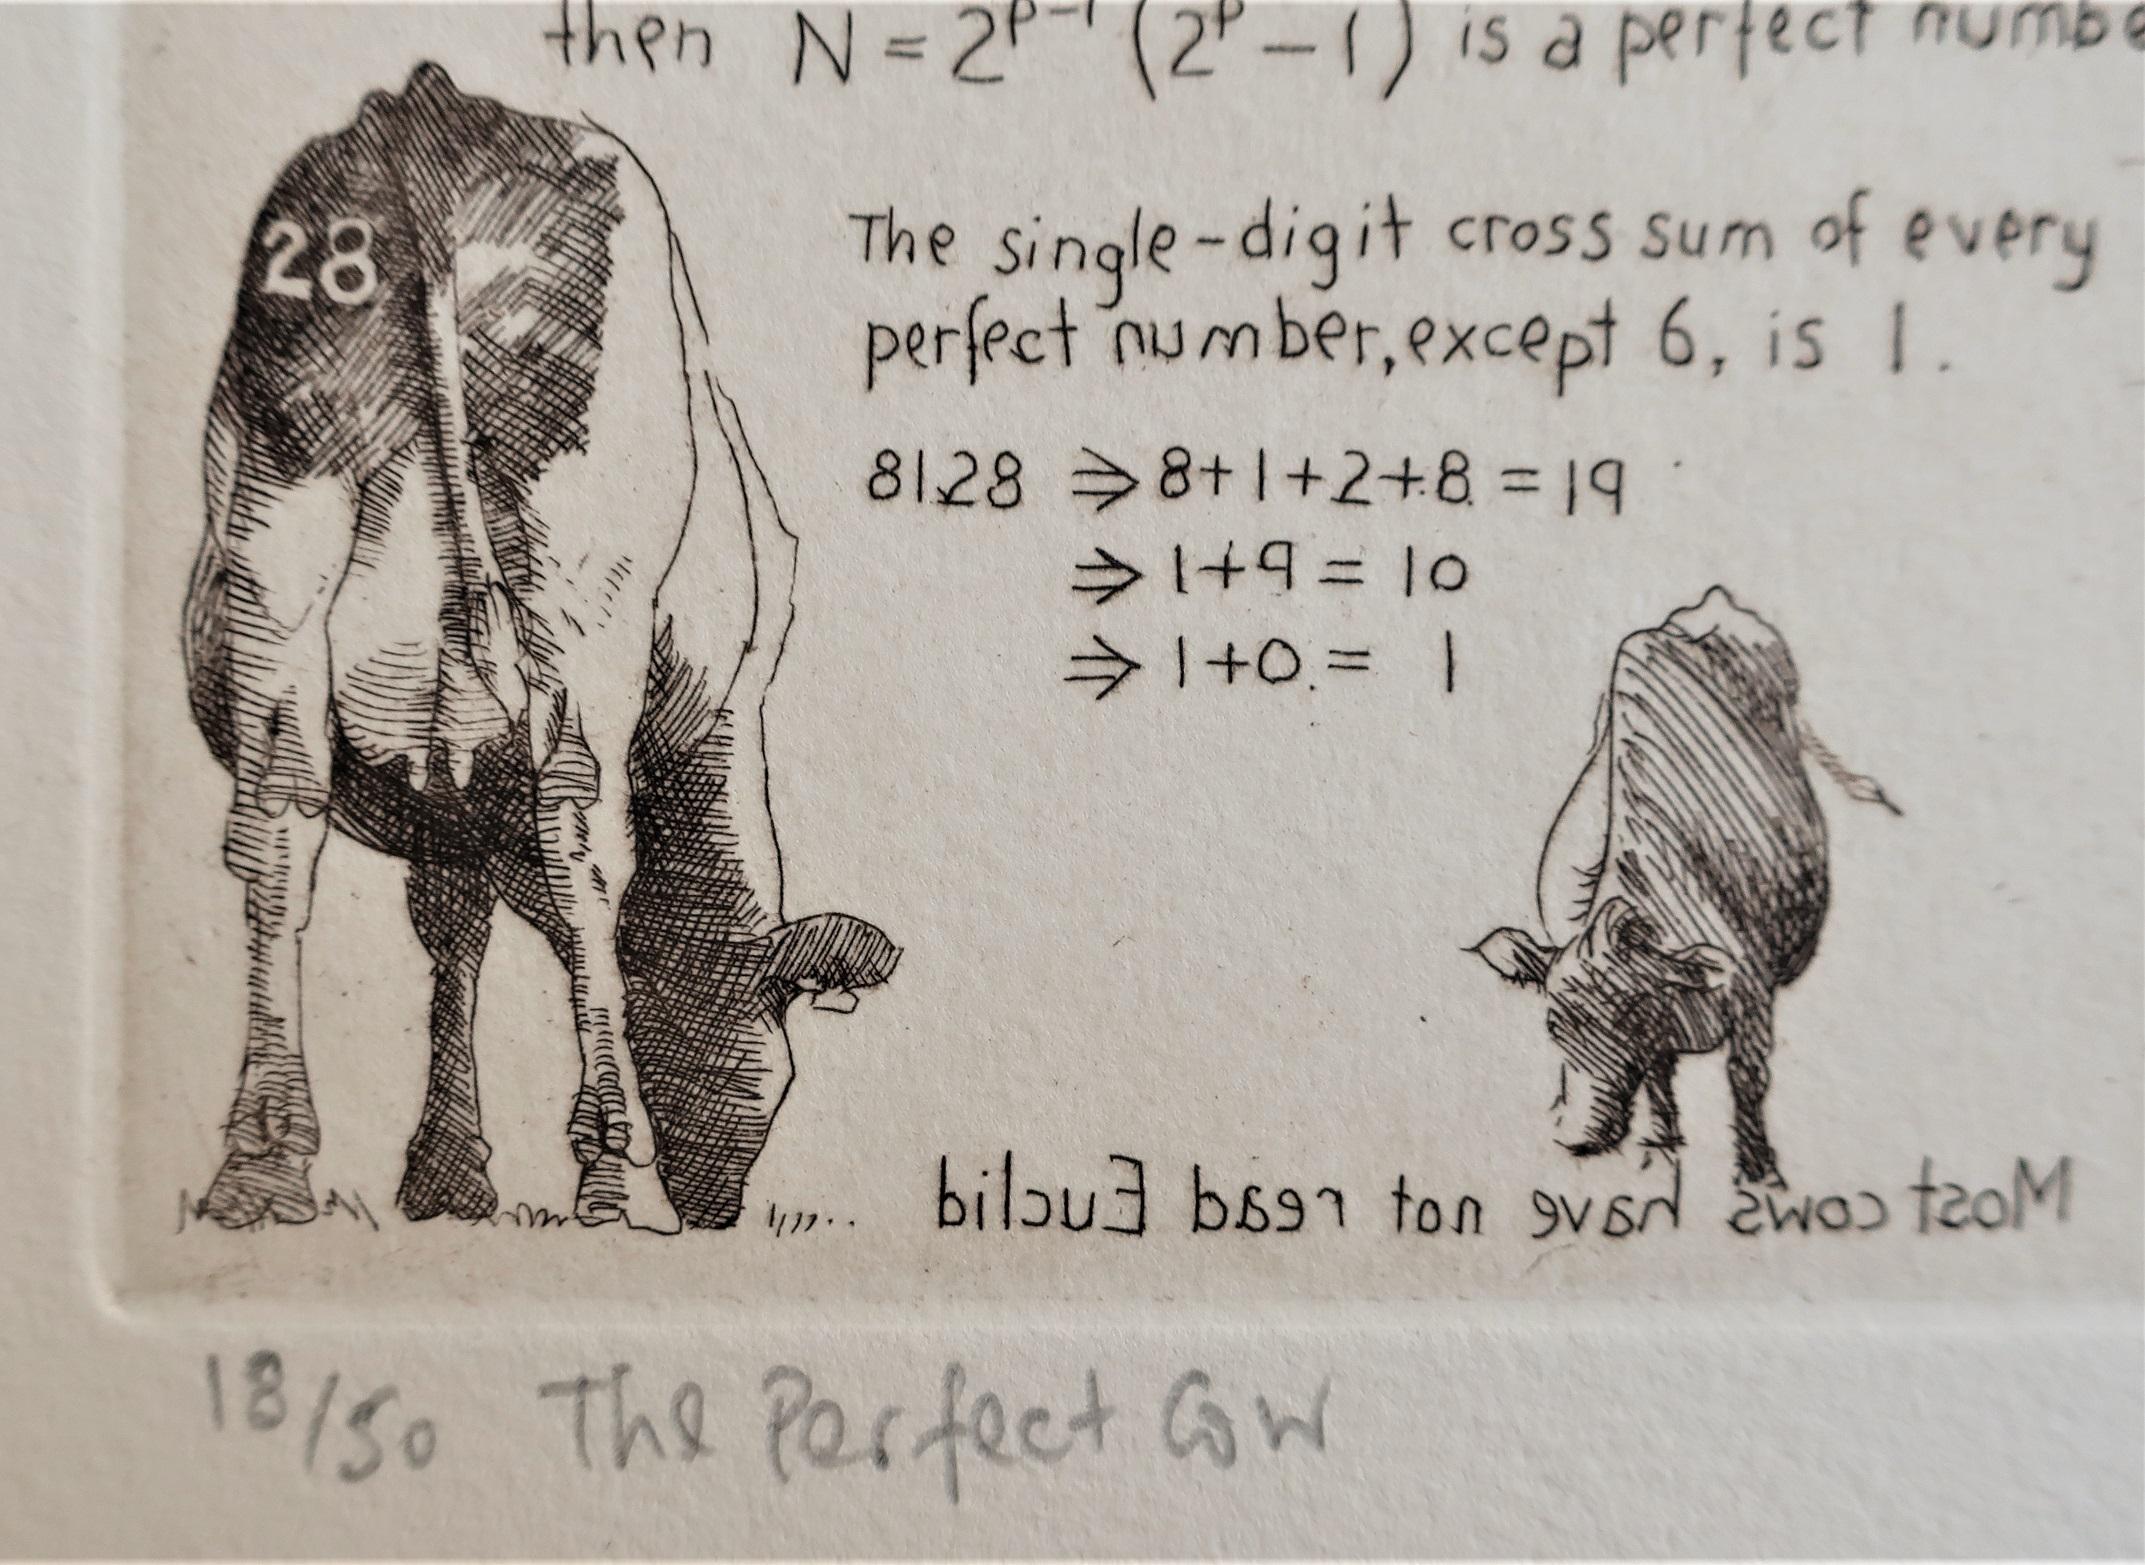 then N = 2^p-1 (2^p - 1) is a perfect numbe
28
The single-digit cross sum of every
perfect number, except 6, is 1.
8128 ⇒ 8+1+2+8 = 19
⇒ 1+9 = 10
⇒ 1+0 = 1
Most cows have not read Euclid
18/50 The Perfect Cow